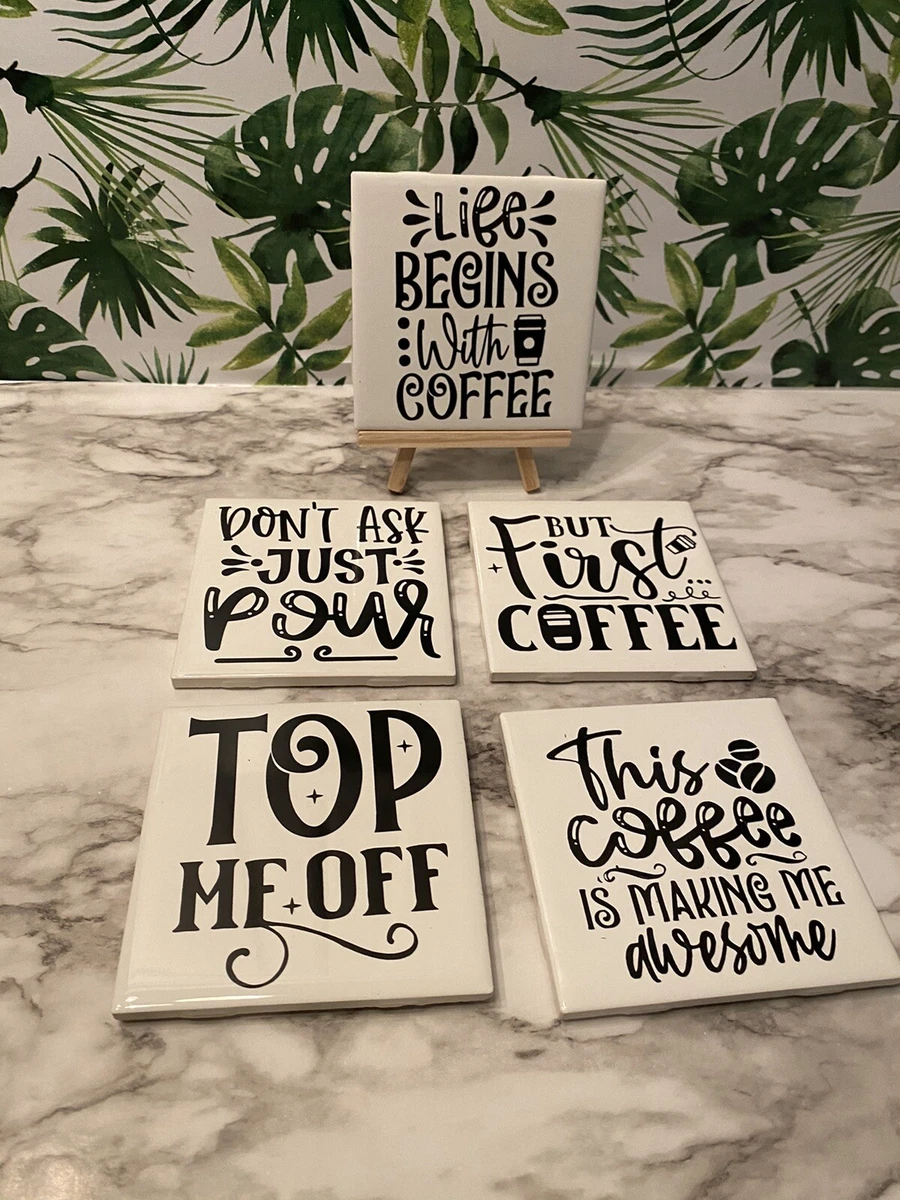 Life
BEGINS
With
COFFEE
DON'T ASK
JUST
Pour
BUT
First
COFFEE
TOP
ME OFF
This
coffee
IS MAKING ME
awesome